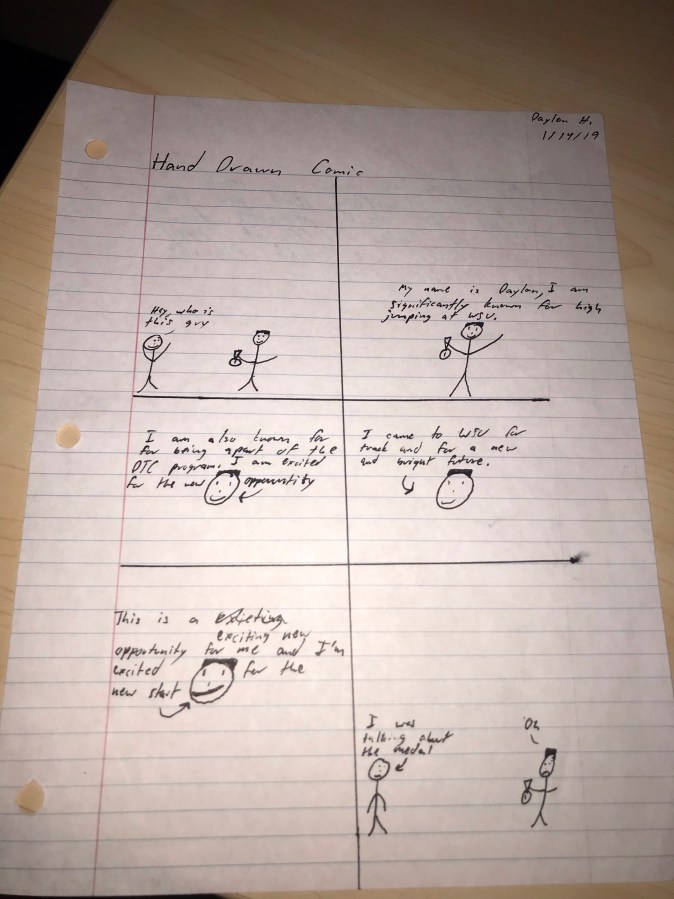 Daylon H.
1/14/19
Hand Drawn Comic
Hey, who is
this guy
My name is Daylon, I am
significantly known for high
jumping at WSU.
I am also known for
for being apart of the
DTC program. I am excited
for the new opportunity
I came to WSU for
track and for a new
and bright future.
This is a
exciting new
opportunity for me and I'm
excited for the
new start
I was
talking about
the medal
Oh